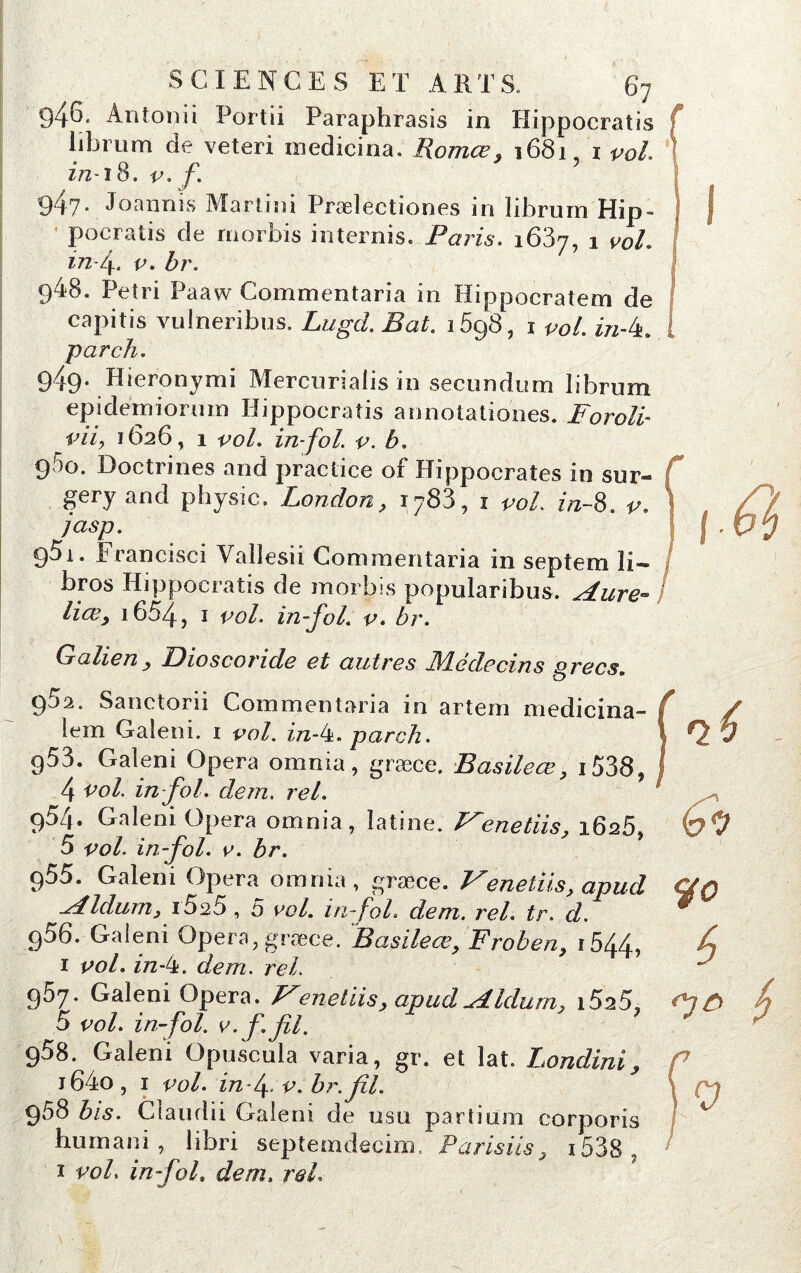 SCIENCES ET ARTS. 67
946. Antonii Portii Paraphrasis in Hippocratis
librum de veteri medicina. Romæ, 1681, 1 vol.
in-18. v. f.
947. Joannis Martini Prælectiones in librum Hip-
pocratis de morbis internis. Paris. 1637, 1 vol.
in-4. v. br.
1
948. Petri Paaw Commentaria in Hippocratem de
capitis vulneribus. Lugd. Bat. 1598, 1 vol. in-4.
parch.
949. Hieronymi Mercurialis in secundum librum
epidemiorum Hippocratis annotationes. Foroli-
vii, 1626, 1 vol. in-fol. v. b.
950. Doctrines and practice of Hippocrates in sur-
gery and physic. London, 1783, 1 vol. in-8. v.
jasp.
951. Francisci Vallesii Commentaria in septem li-
bros Hippocratis de morbis popularibus. Aure-
liæ, 1654, 1 vol. in-fol. v. br.
Galien, Dioscoride et autres Médecins grecs.
952. Sanctorii Commentaria in artem medicina-
lem Galeni. 1 vol. in-4. parch.
953. Galeni Opera omnia, græce. Basileæ, 1538,
4 vol. in-fol. dem. rel.
954. Galeni Opera omnia, latine. Venetiis, 1625,
5 vol. in-fol. v. br.
955. Galeni Opera omnia, græce. Venetiis, apud
Aldum, 1525, 5 vol. in-fol. dem. rel. tr. d.
956. Galeni Opera, græce. Basileæ, Froben, 1544,
1 vol. in-4. dem. rel.
957. Galeni Opera. Venetiis, apud Aldum, 1525,
5 vol. in-fol. v. f. fil.
958. Galeni Opuscula varia, gr. et lat. Londini,
1640, 1 vol. in-4. v. br. fil.
958 bis. Claudii Galeni de usu partium corporis
humani, libri septemdecim. Parisiis, 1538,
1 vol. in-fol. dem. rel.